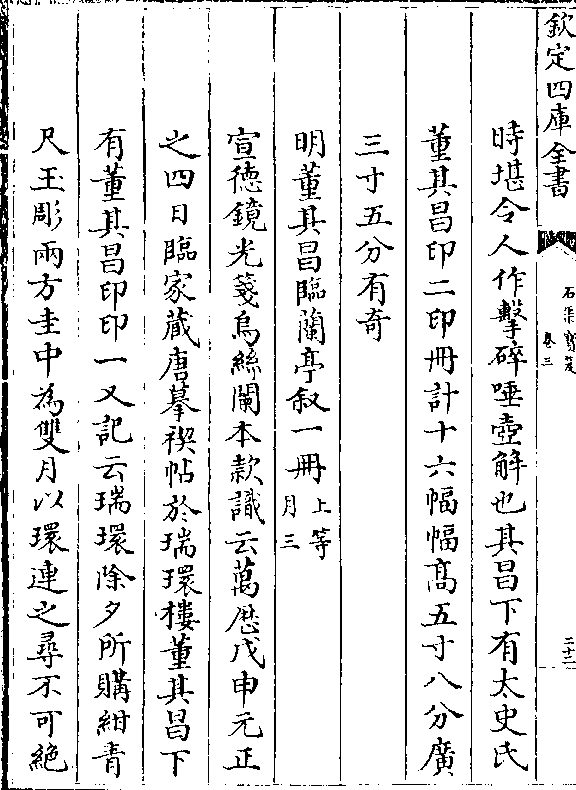 欽定四庫全書
石渠寶笈
卷三
二十二
時堪令人作擊碎唾壺解也其昌下有太史氏
董其昌印二印冊計十六幅幅高五寸八分廣
三寸五分有奇
明董其昌臨蘭亭叙一冊上等
月三
宣德鏡光箋烏絲闌本款識云萬厯戊申元正
之四日臨家藏唐摹禊帖於瑞環樓董其昌下
有董其昌印印一又記云瑞環除夕所購紺青
尺玉彫兩方圭中為雙月以環連之尋不可絶